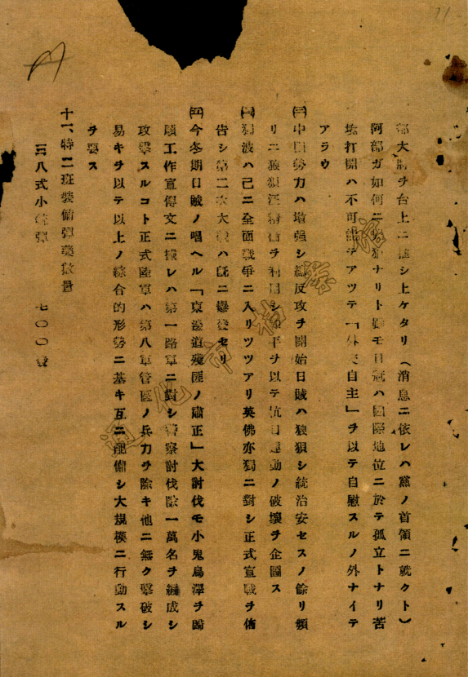 部大將ヲ台上ニ差シ上ケタリ(消息ニ依レハ黨ノ首領ニ就クト)
阿部ガ如何ニ ナリト雖モ日賊ハ國際地位ニ於テ孤立トナリ苦
境打開ハ不可能デアツテ「外交自主」ヲ以テ自慰スルノ外ナイデ
アラウ
中國勢力ハ增强シ總反攻ヲ開始日賊ハ狼狽シ統治安セスノ餘リ頻
リニ 汪精衛ヲ利用シ和平ヲ以テ抗日運動ノ破壞ヲ企圖ス
獨波ハ已ニ全面戰爭ニ入リツツアリ英佛亦獨ニ對シ正式宣戰ヲ佈
告シ第二次大戰ハ既ニ爆發セリ
今冬期日賊ノ唱ヘル「東邊道殘匪ノ肅正」大討伐モ小鬼島澤ヲ
工作宣傳文ニ據レハ第一路軍ニ對シ警察討伐隊一萬名ヲ編成シ
攻擊スルコト正式陸軍ハ第八軍管區ノ兵力ヲ除キ他ニ無ク擊破シ
易キヲ以テ以上ノ綜合的形勢ニ基キ互ニ配備シ大規模ニ行動スル
ヲ要ス
十一、特二班裝備彈藥數量
三八式小銃彈 七〇〇發
通化市档案馆
71